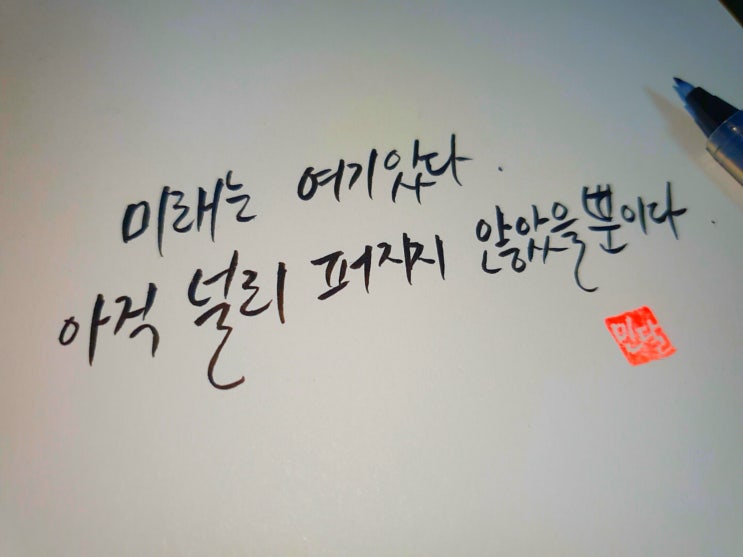 미래는 여기있다.
아직 널리 퍼지지 않았을뿐이다.
민달